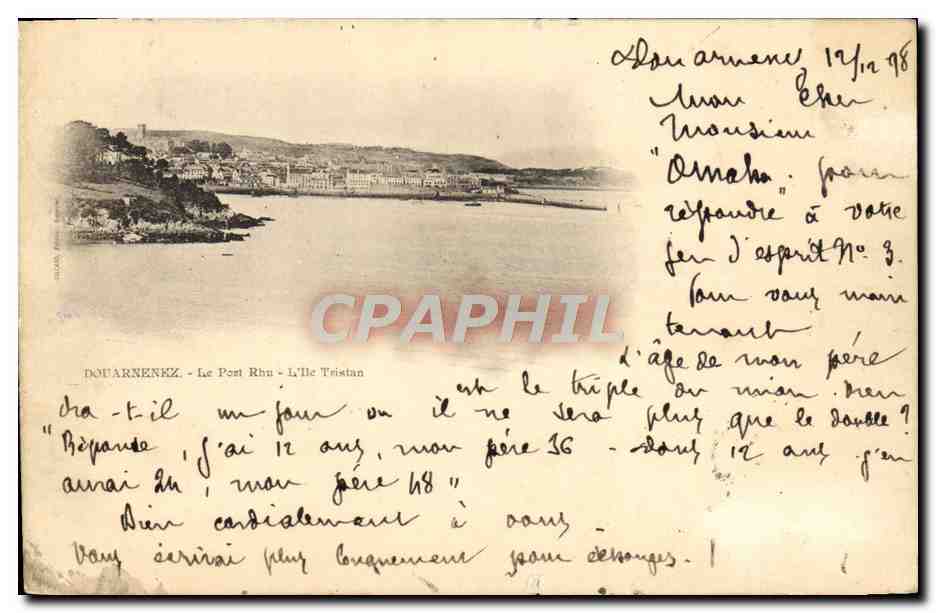 Douarnenez 12/12 98
Mon cher
Monsieur
"Omaha" pour
répondre à votre
jeu d'esprit No. 3.
Pour vous main
tenant
CPAPHIL
L'âge de mon père
DOUARNENEZ. - Le Port Rhu - L'Ile Tristan
est le triple du mien. Vien
dra-t-il un jour ou il ne sera plus que le double?
"Réponse, j'ai 12 ans, mon père 36 - dans 12 ans j'en
aurai 24, mon père 48"
Bien cordialement à vous
Vous écrirai plus longuement pour échanges. !